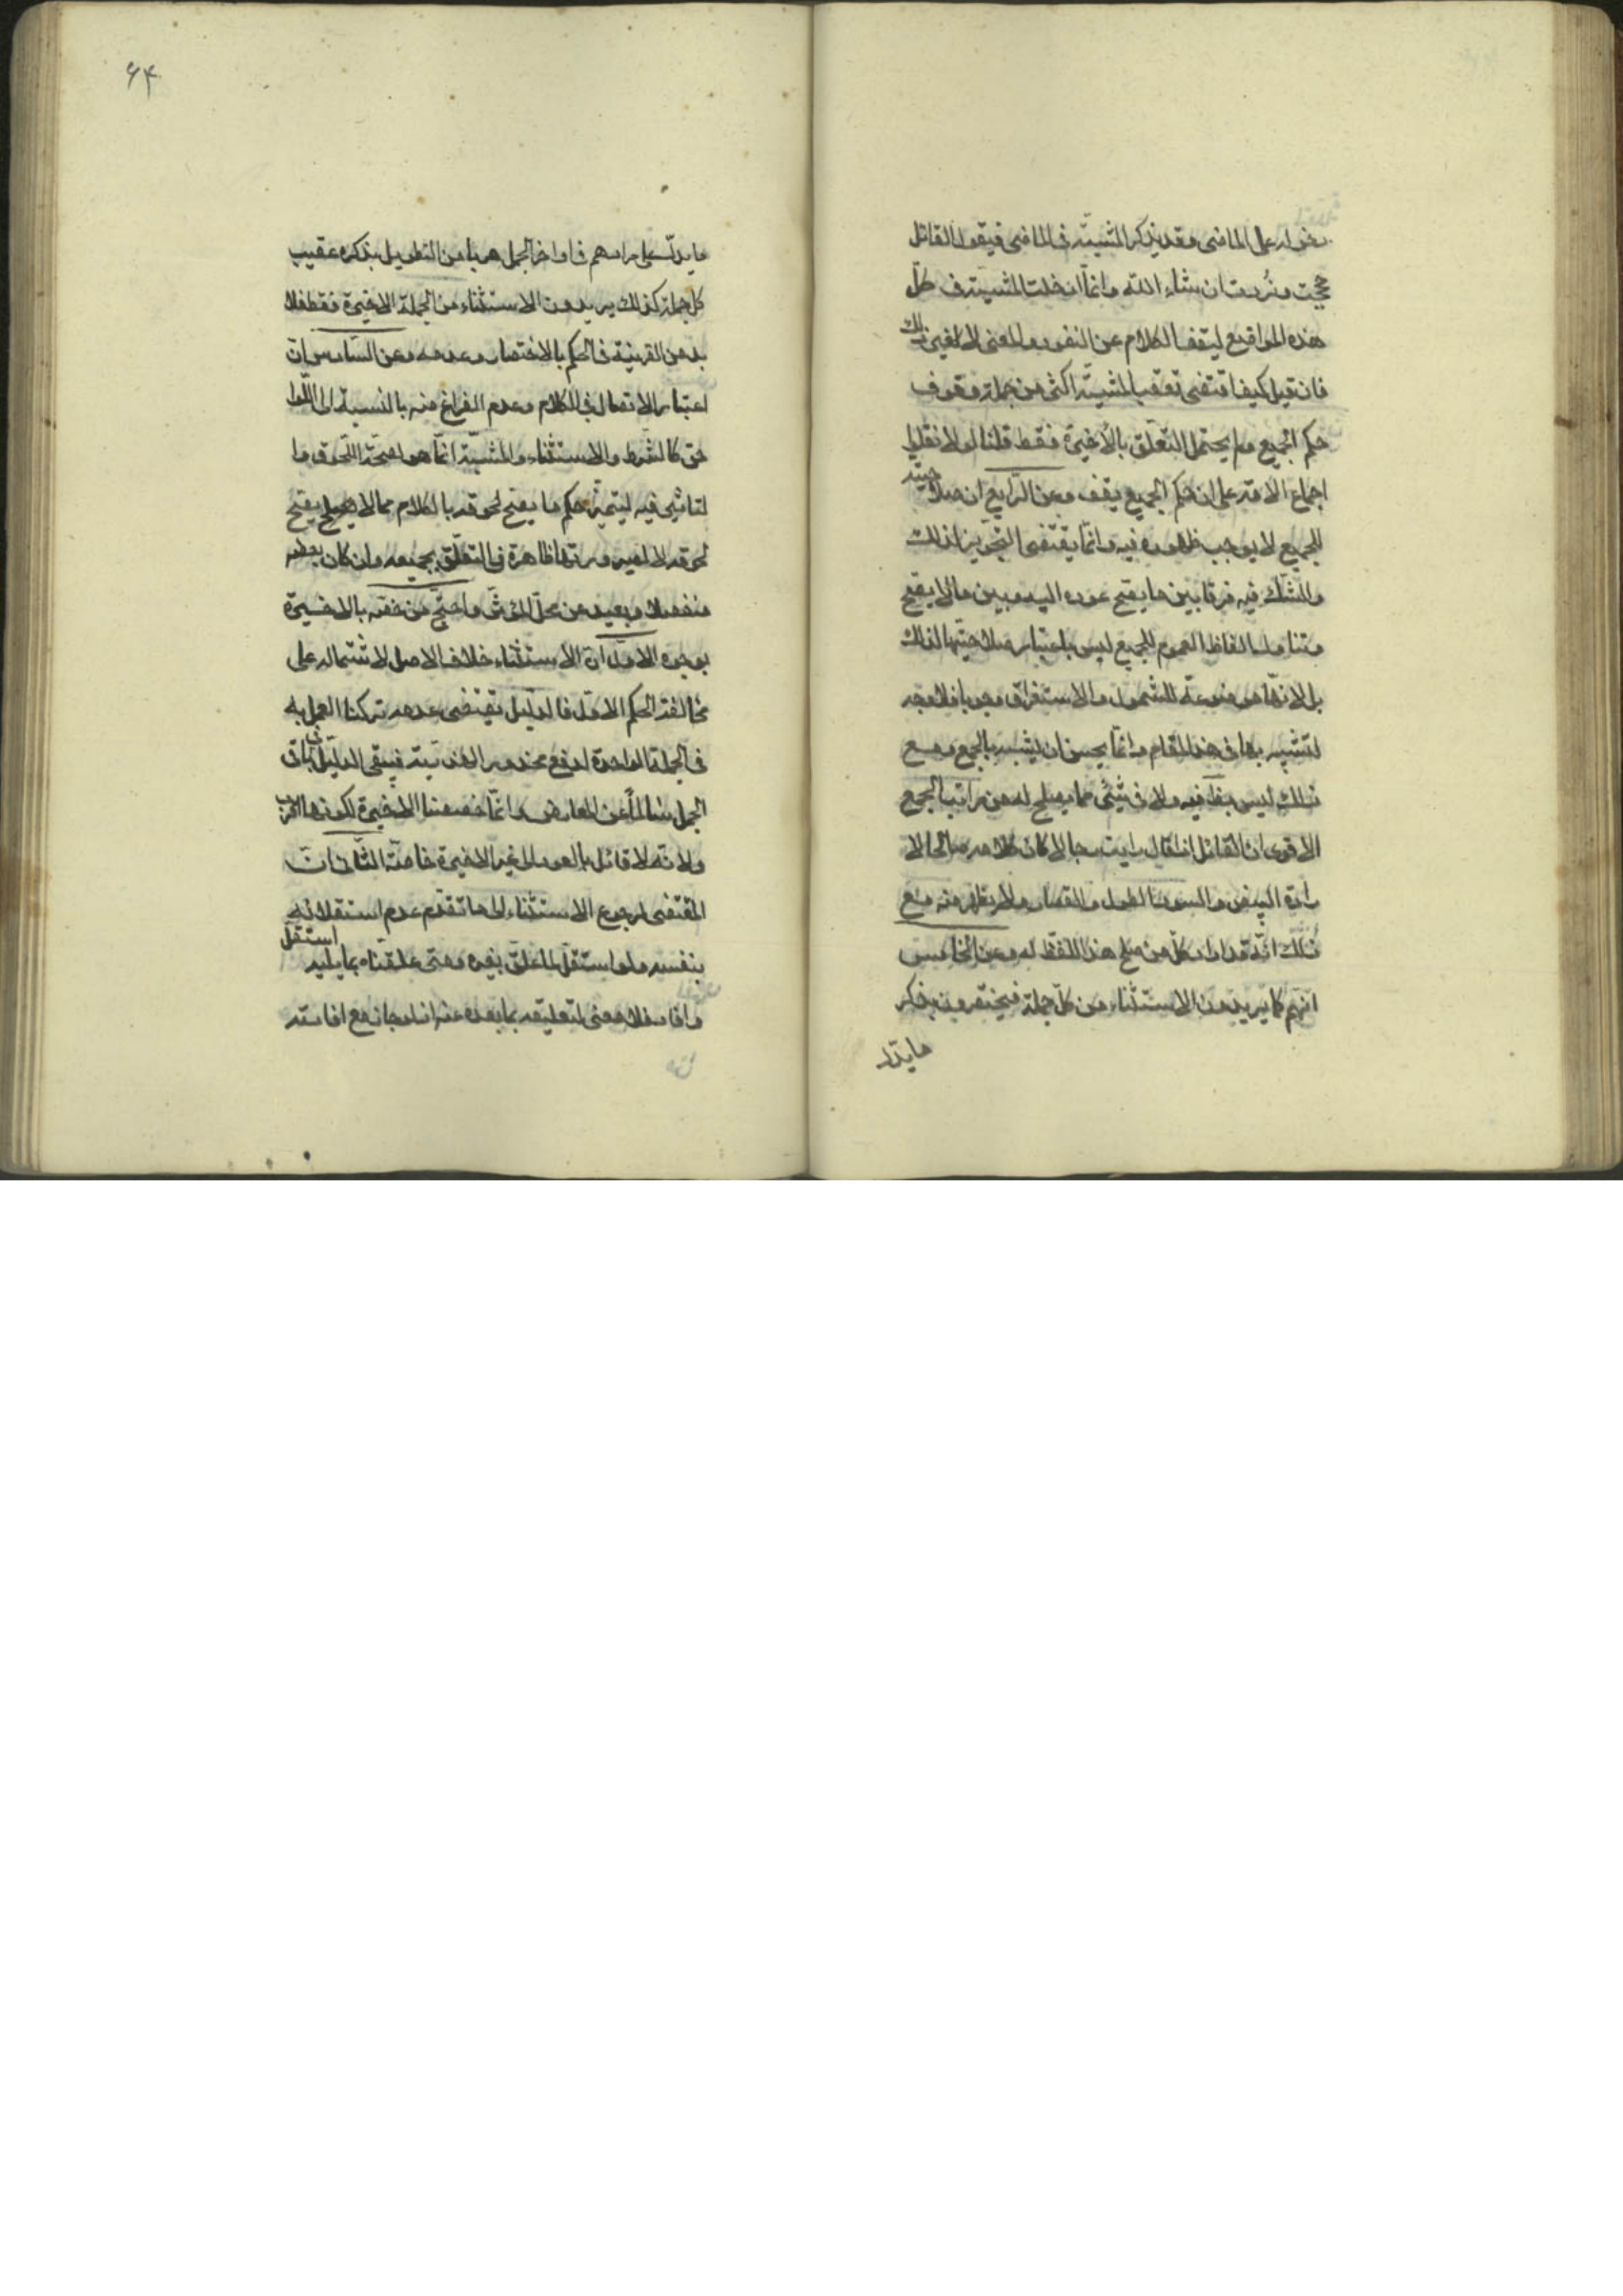 بدخوله على الماضى وقد يذكر المشيّة فى الماضى فيقول القائل
حججت وزُرت ان شاء الله وانّما دخلت المشيّة فى كلّ
هذه المواقيع ليقف الكلام عن النفود والمعنى لا لغير ذلك
فان قيل كيف اقتضى تعقب المشيّة اكثر من جملة وقوف
حكم الجميع ولم يحتمل التعلّق بالأخيرة فقط قلنا لولا نقلوا
اجماع الامّة على ان حكم الجميع يقف وعن الرّابع ان صلاحيته
للجميع لا يوجب ظهوره فيه وانّما يقتضى التجويز لذلك
والشكّ فيه فرقا بين ما يصح عوده اليه وبين ما لا يصح
وتناول الفاظ العموم للجميع ليس باعتبار صلاحيتها لذلك
بل لانّها موضوعة للشمول والاستغراق وجوبا فلا وجه
لتشبيه بها فى هذا المقام وانّما يحسن ان يشبه بالجمع ومع
ذلك ليس بظ فيه ولا فى شيئى مما يصلح له من مراتب الجمع
الاقوى ان القائل اذا قال رايت رجالا كان كلامه صالحا لا
رادة البيض والسود والطول والقصار ولا يظهر منه مع
ذلك انّه قد اراد كلّ من صلح هذا اللفظ له وعن الخامس
انّهم كما يريدون الاستثناء من كلّ جملة فيختصرون بذكر
ما يدل
۶۴
ما يدلّ على مرادهم فى اواخر الجمل هربا من التطويل بذكره عقيب
كل جملة كذلك يريدون الاستثناء من الجملة الاخيرة فقط فلا
بد من القرينة فى الحكم بالاختصار وعدمه وعن السّادس انّ
اعتبار الاتصال فى الكلام وعدم الفراغ منه بالنسبة الى اللّوا
حق كالشرط والاستثناء والمشيّة انّما هو لصحّة اللّحوق وا
لتاثير فيه ليتميّز حكم ما يصح لحوقه بالكلام مما لا يصح
لحوقه لا لصيرورتها ظاهرة فى التعلّق بجميعه وان كان بعضه
منفصلا وبعيد عن محلّ المؤثر واحتج من خصّه بالاخيرة
بوجوه الاوّل انّ الاستثناء خلاف الاصل لاشتماله على
مخالفة الحكم الاوّل فالدليل يقتضى عدمه تركنا العمل به
فى الجملة الواحدة لدفع محذور الهذريّة فيبقى الدليل فى باقى
الجمل سالماً عن المعارض وانّما خصصنا الاخيرة لكونها اقرب
ولانّه لا قائل بالعود الى غير الاخيرة خاصّة الثّانى انّ
المقتضى لرجوع الاستثناء الى ما تقدّم عدم استقلاله
بنفسه ولو استقلّ لما علّق بغيره ومتى علّقناه بما يليه استقلّ
وافاد فلا معنى لتعليقه بما بعد عنه اذ لو جاز مع افادته